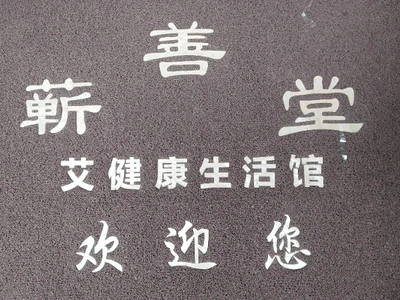 蕲善堂
艾健康生活馆
欢迎您